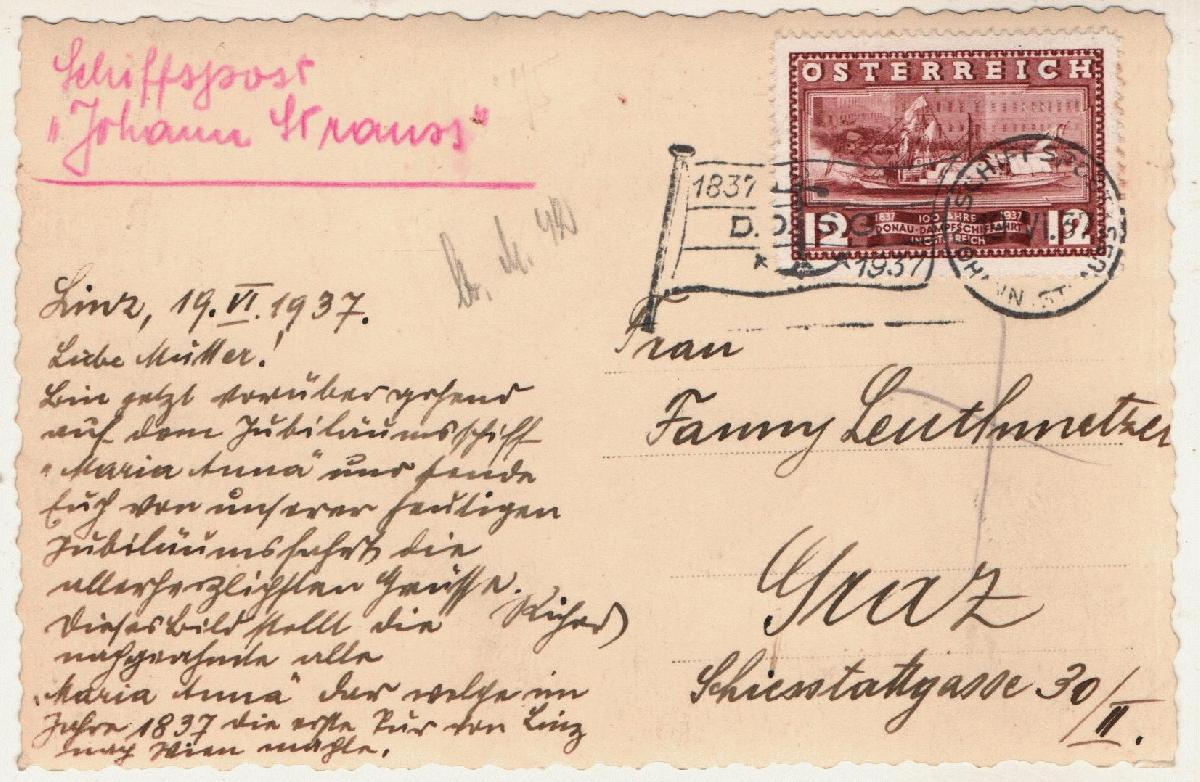 Schiffspost
"Johann Strauss"
ÖSTERREICH
12 1837 100 JAHRE 1937 12
DONAU-DAMPFSCHIFFAHRT
IN ÖSTERREICH
1837
D.D.S.G.
1937
SCHIFFSPOST
VI.37
JOHANN STRAUSS
Linz, 19.VI.1937.
Liebe Mutter!
Bin jetzt vorübergehend
auf dem Jubiläumsschiff
"Maria Anna" und sende
Euch von unserer heutigen
Jubiläumsfahrt die
allerherzlichsten Grüsse.
Richard
Dieses Bild stellt die
nachgeahmte alte
"Maria Anna" dar welche im
Jahre 1837 die erste Tur von Linz
nach Wien machte.
Frau
Fanny Leuthmetzer
Graz
Schiesstattgasse 30/II.